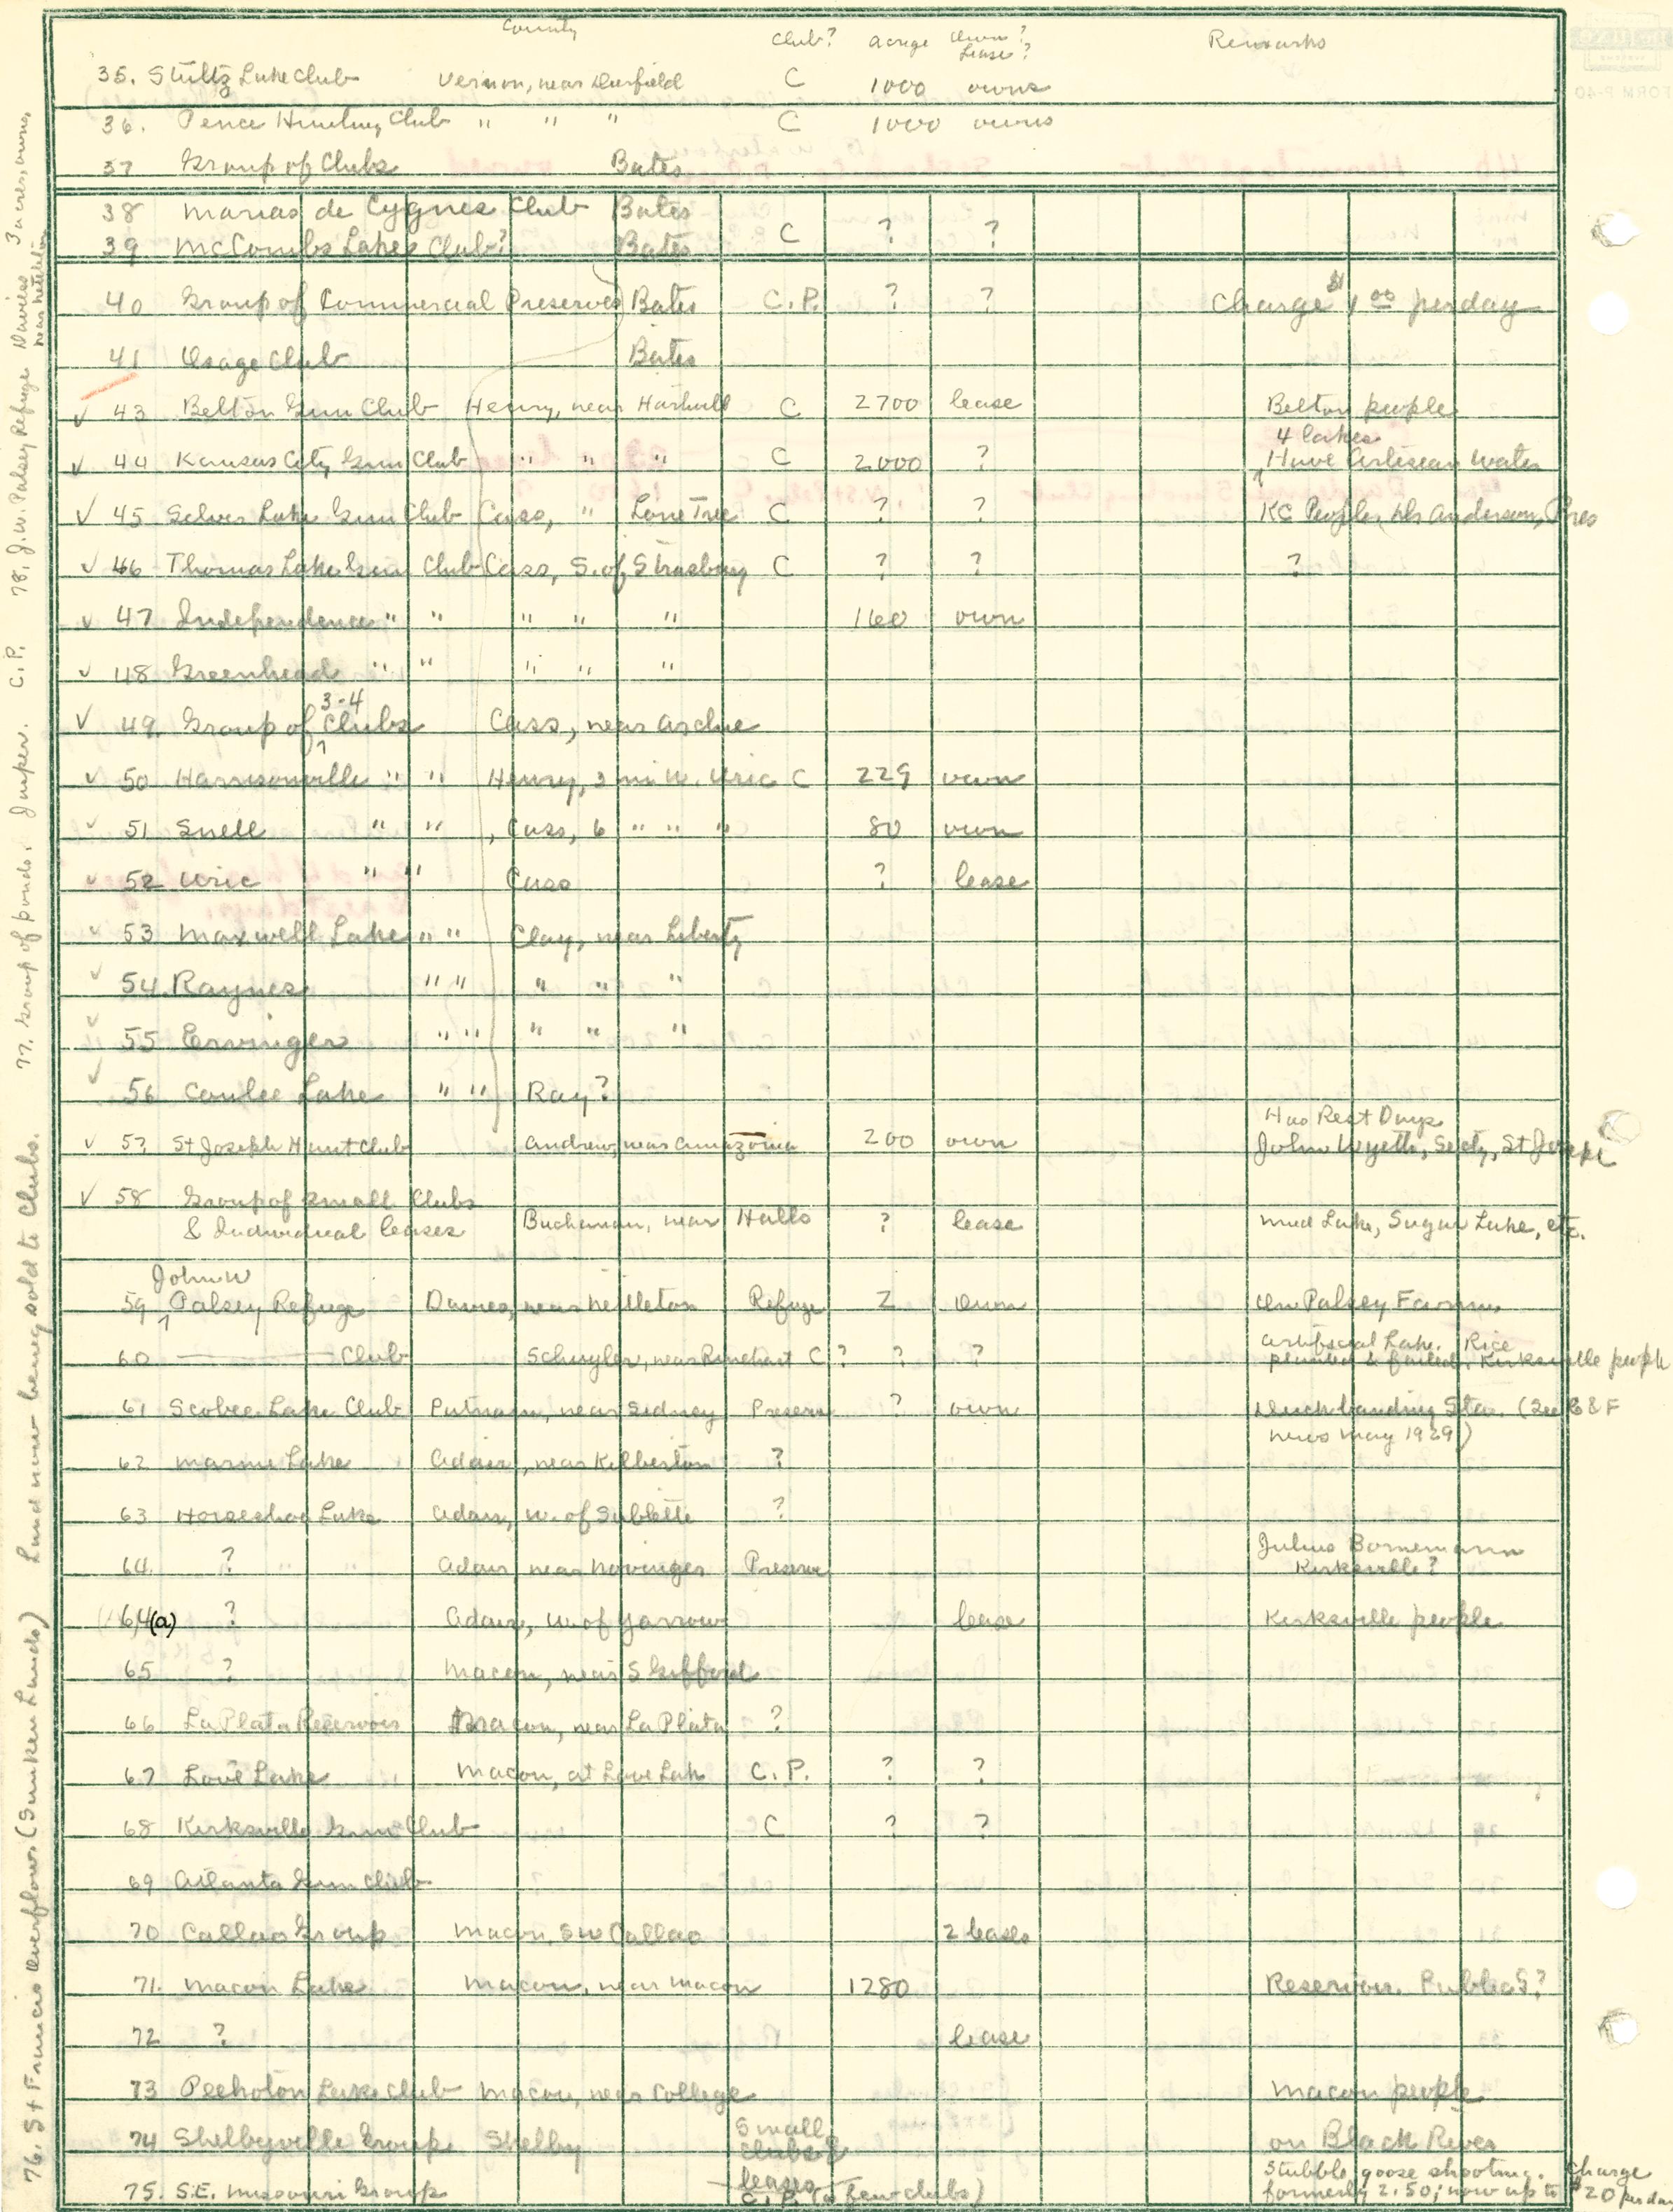 County Club? Acrge Own? Lease? Remarks
35. Stultz Lake Club Vernon, near Deerfield C 1000 owns
36. Pence Hunting Club " " " C 1000 owns
37 Group of Clubs Bates
38 Marias de Cygnes Club Bates
39 McCombs Lakes Club? Bates C ? ?
40 Group of Commercial Preserves Bates C.P. ? ? Charge $1.00 per day
41 Osage Club Bates
✓ 43 Belton Gun Club Henry, near Hartwell C 2700 lease Belton people
✓ 44 Kansas City Gun Club " " " C 2000 ? 4 lakes Have Artesean water
✓ 45 Silver Lake Gun Club Cass, " Lone Tree C ? ? KC People, Anderson, Pres
✓ 46 Thomas Lake Gun Club Cass, S. of Strasburg C ? ? ?
✓ 47 Independence " " " " " 160 own
✓ 48 Greenhead " " " " "
✓ 49. Group of 3-4 Clubs Cass, near
✓ 50 Harrisonville " " Henry, 3 mi W. Uric C 229 own
✓ 51 Snell " " , Cass, 6 " " " 80 own
✓ 52 Uric " " Cass ? lease
✓ 53 Maxwell Lake " " Clay, near Liberty
✓ 54. Raynes " " " " "
✓ 55 Ervinger " " " " "
✓ 56 Coulee Lake " " Ray?
✓ 57 St Joseph Hunt Club Andrew, near Amazonia 200 own Has Rest Days
John Wyeth, Secty, St Joseph
✓ 58 Group of small Clubs
& Individual leases Buchanan, near Halls ? lease Mud Lake, Sugar Lake, etc.
59 John W Palsey Refuge Davies, near Nettleton Refuge 2 Own On Palsey Farm
60 Club Schuyler, near Rinehart C? ? ? Artificial Lake. Rice
planted & failed. Kirksville people
61 Scobee Lake Club Putnam, near Sidney Preserve ? own Duck banding Sta. (See G & F
news May 1929)
62 Marine Lake Adair, near Kilberton ?
63 Horseshoe Lake Adair, W. of Sublette ?
64. ? " " Adair near Novinger Preserve Julius Bornemann
Kirksville?
64(a) ? Adair, W. of Yarrow lease Kirksville people
65 ? Macon, near S Gifford
66 La Plata Reservoir Macon, near La Plata ?
67 Love Lake Macon, at Love Lake C.P. ? ?
68 Kirksville Gun Club C ? ?
69 Atlanta Gun Club
70 Callao Group Macon, SW Callao 2 leases
71. Macon Lake Macon, near Macon 1280 Reservoir. Public?
72 ? lease
73 Peeholon Lake Club Macon, near College Macon people
74 Shelbyville Group Shelby Small clubs & leases on Black River
75. S.E. Missouri Group C.P. (a few clubs) Stubble goose shooting. Charge
formerly 2.50; now up to $20 per day
76. St Francis Overflows (Sunken Lands) Land now being sold to Clubs. 77. Group of ponds. Jasper. C.P. 78. J.W. Palsey Refuge Daviess 3 acres, owns,
near Nettleton